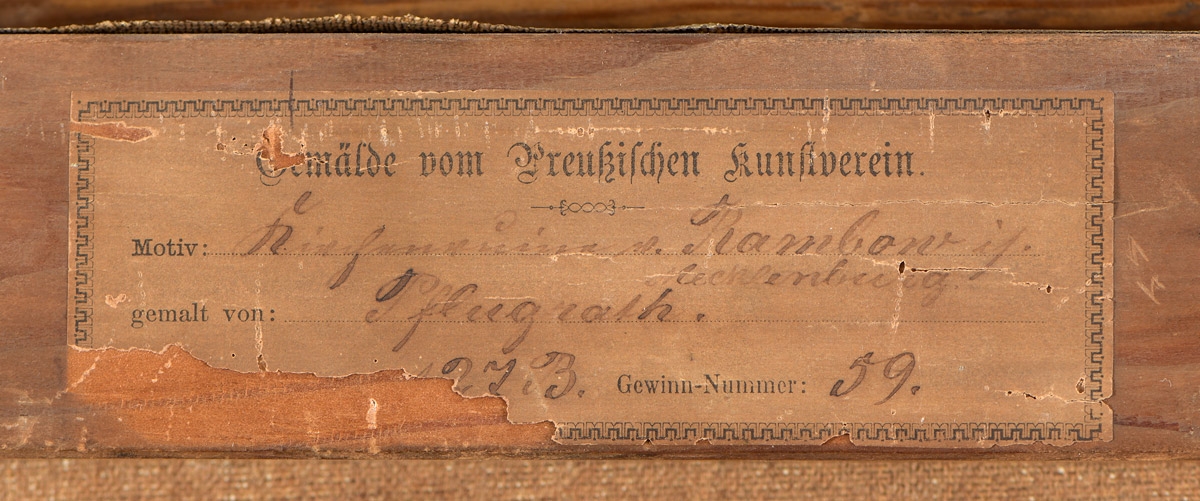 Gemälde vom Preußischen Kunstverein.
Motiv: Kirchenruine v. Rambow i/.
Mecklenburg.
gemalt von: Pflugrath.
273 B. Gewinn-Nummer: 59.